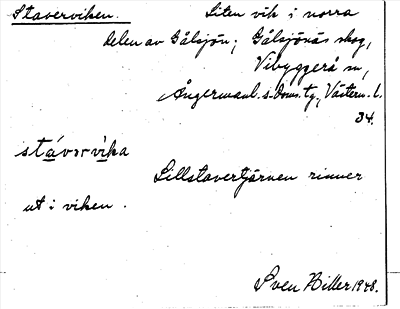 Staverviken. Liten vik i norra
delen av Gålsjön; Gålsjönäs skog,
Vibyggerå sn,
Ångermanl. s. doms. tg., Västern. l.
34.
stávərvi̱ka
Lillstavertjärnen rinner
ut i viken.
Sven Biller 1948.